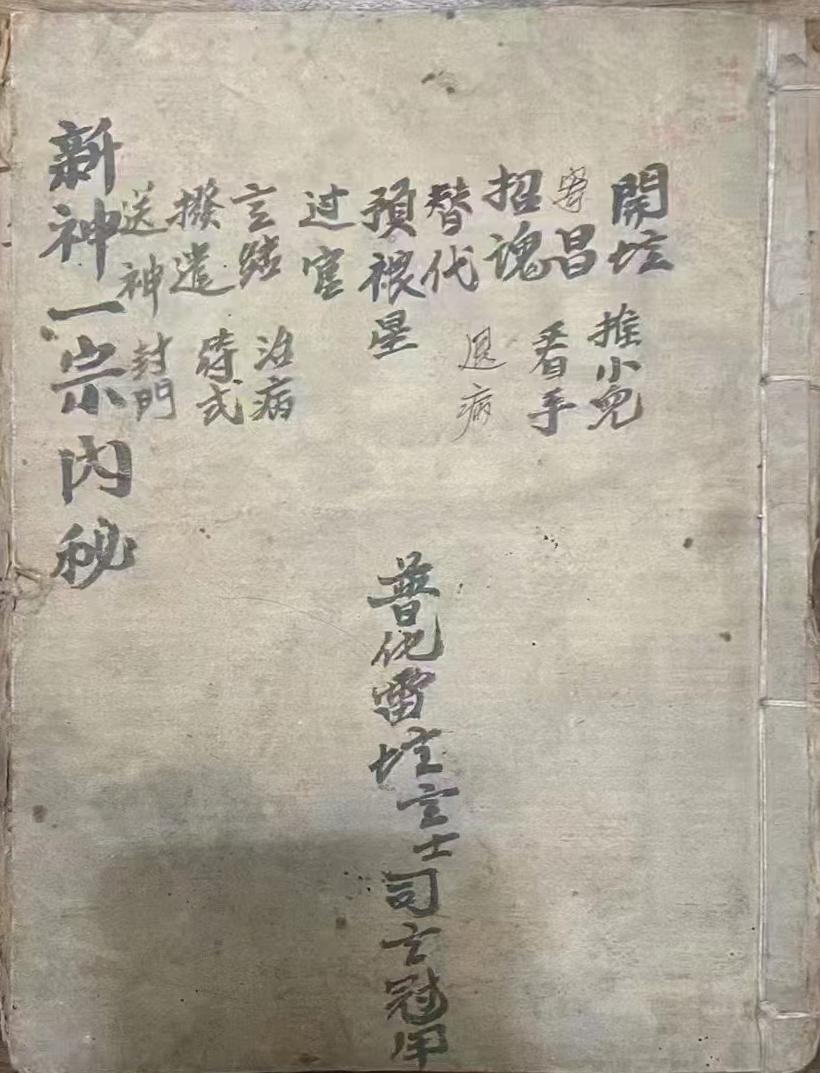 開坛
推小兒
昌
看手
招魂
退病
替代
預禳星
过官
治病
撥遣
符式
送神
封門
新神一宗内秘
普化雷坛玄士司玄冠甲